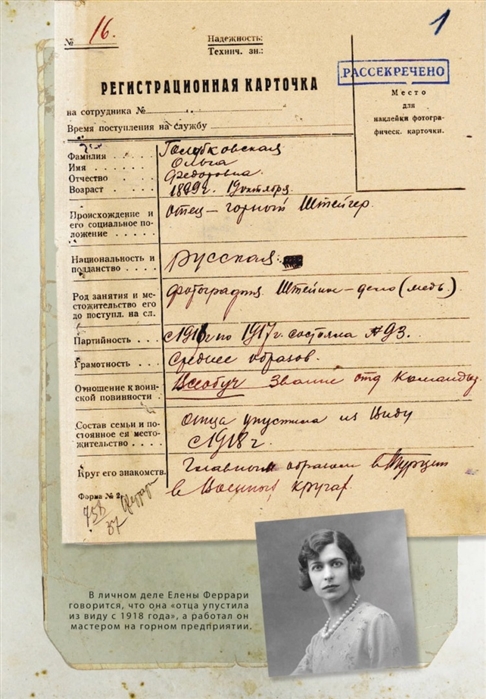 № 16.
Надежность:
Технич. зн.:
1
РАССЕКРЕЧЕНО
РЕГИСТРАЦИОННАЯ КАРТОЧКА
Место
для
наклейки фотогра-
фическ. карточки.
на сотрудника №
Время поступления на службу
Фамилия Голубковская
Имя Ольга
Отчество Федоровна
Возраст 1899 г. 19 октября
Происхождение и его социальное по-
ложение отец – горный Штейгер.
Национальность и
подданство Русская
Род занятия и ме-
стожительство его
до поступл. на сл. фотография. Штейнс – дело (медь)
Партийность с 1916 по 1917 г. состояла
Грамотность Среднее образов.
Отношение к воин-
ской повинности Всеобуч Звание отд Команды
Состав семьи и по-
стоянное ея место-
жительство отца упустила из виду
с 1918 г.
Круг его знакомств. Главным образом в Турции
в Военных кругах
Форма № 2.
В личном деле Елены Феррари
говорится, что она «отца упустила
из виду с 1918 года», а работал он
мастером на горном предприятии.